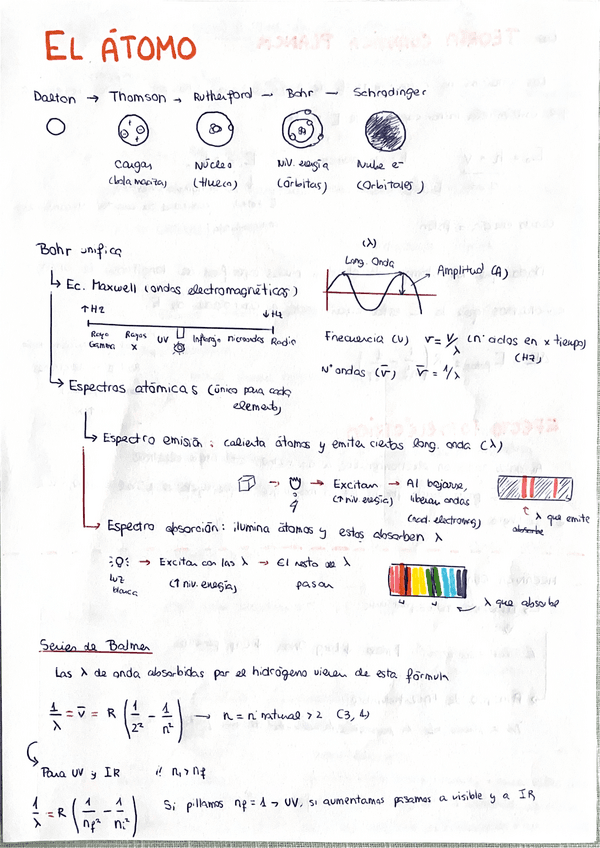 EL ÁTOMO
Dalton → Thomson → Rutherford — Bohr — Schrodinger
Cargas Núcleo Niv. energía Nube e-
(bola maciza) (Hueca) (órbitas) (Orbitales)
Bohr unifica
(λ)
Long. Onda
Amplitud (A)
Ec. Maxwell (ondas electromagnéticas)
↑Hz ↓Hz
Rayos Gamma Rayos X UV Infrarrojo microondas Radio
Frecuencia (ν) ν = V/λ (nº ciclos en x tiempo)
(Hz)
Nº ondas (ν̅) ν̅ = 1/λ
Espectros atómicos (único para cada
elemento)
Espectro emisión: calienta átomos y emiten ciertas long. onda (λ)
→ Excitan → Al bajarse,
(↑ niv. energía) liberan ondas
(rad. electromag)
λ que emite
absorbe
Espectro absorción: ilumina átomos y estos absorben λ
→ Excitan con las λ → El resto de λ
luz blanca (↑ niv. energía) pasan
λ que absorbe
Series de Balmer
Las λ de onda absorbidas por el hidrógeno vienen de esta fórmula
1/λ = ν̅ = R (1/2² - 1/n²) → n = nº natural > 2 (3, 4)
Para UV y IR ¡! ni > nf
1/λ = R (1/nf² - 1/ni²) Si pillamos nf = 1 → UV, si aumentamos pasamos a visible y a IR